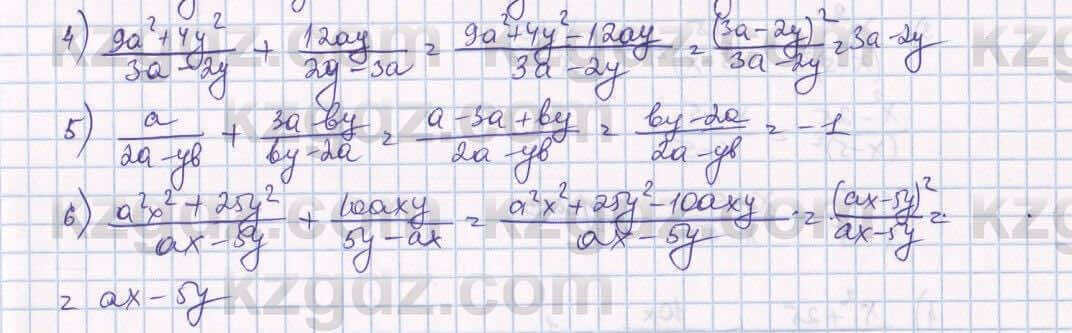 4) (9a²+4y²)/(3a-2y) + 12ay/(2y-3a) = (9a²+4y²-12ay)/(3a-2y) = (3a-2y)²/(3a-2y) = 3a-2y
5) a/(2a-yb) + (3a-by)/(by-2a) = (a-3a+by)/(2a-yb) = (by-2a)/(2a-yb) = -1
6) (a²x²+25y²)/(ax-5y) + 10axy/(5y-ax) = (a²x²+25y²-10axy)/(ax-5y) = (ax-5y)²/(ax-5y) =
= ax-5y
kzgdz.com